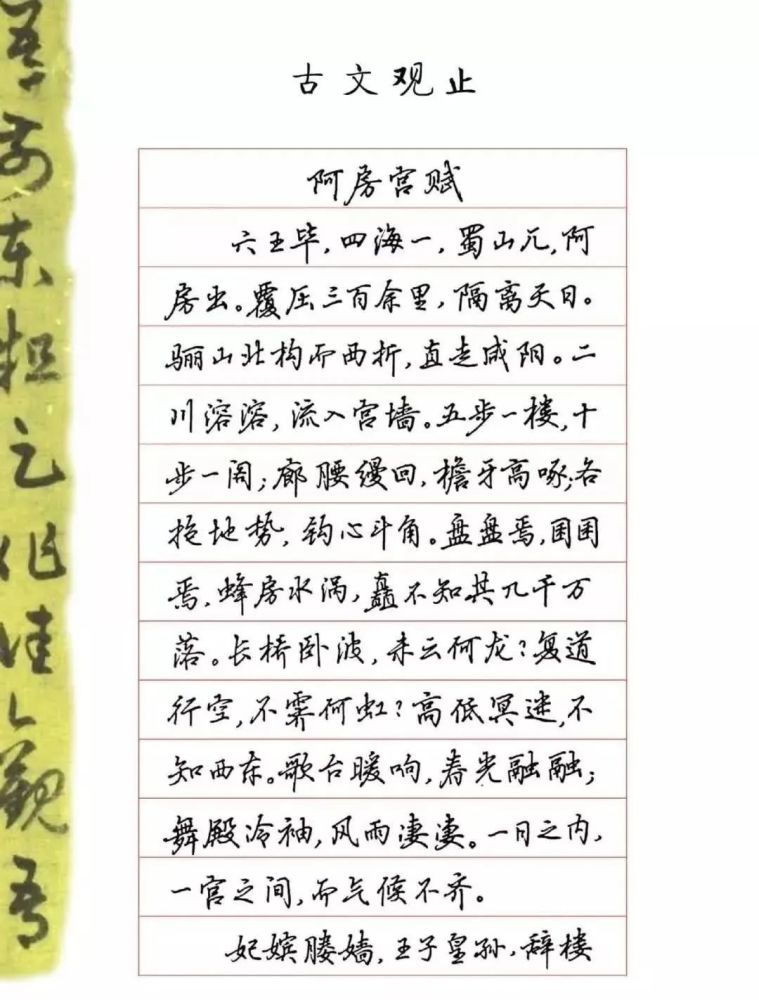 古文观止
阿房宫赋
六王毕，四海一，蜀山兀，阿
房出。覆压三百余里，隔离天日。
骊山北构而西折，直走咸阳。二
川溶溶，流入宫墙。五步一楼，十
步一阁；廊腰缦回，檐牙高啄；各
抱地势，钩心斗角。盘盘焉，囷囷
焉，蜂房水涡，矗不知其几千万
落。长桥卧波，未云何龙？复道
行空，不霁何虹？高低冥迷，不
知西东。歌台暖响，春光融融；
舞殿冷袖，风雨凄凄。一日之内，
一宫之间，而气候不齐。
妃嫔媵嫱，王子皇孙，辞楼